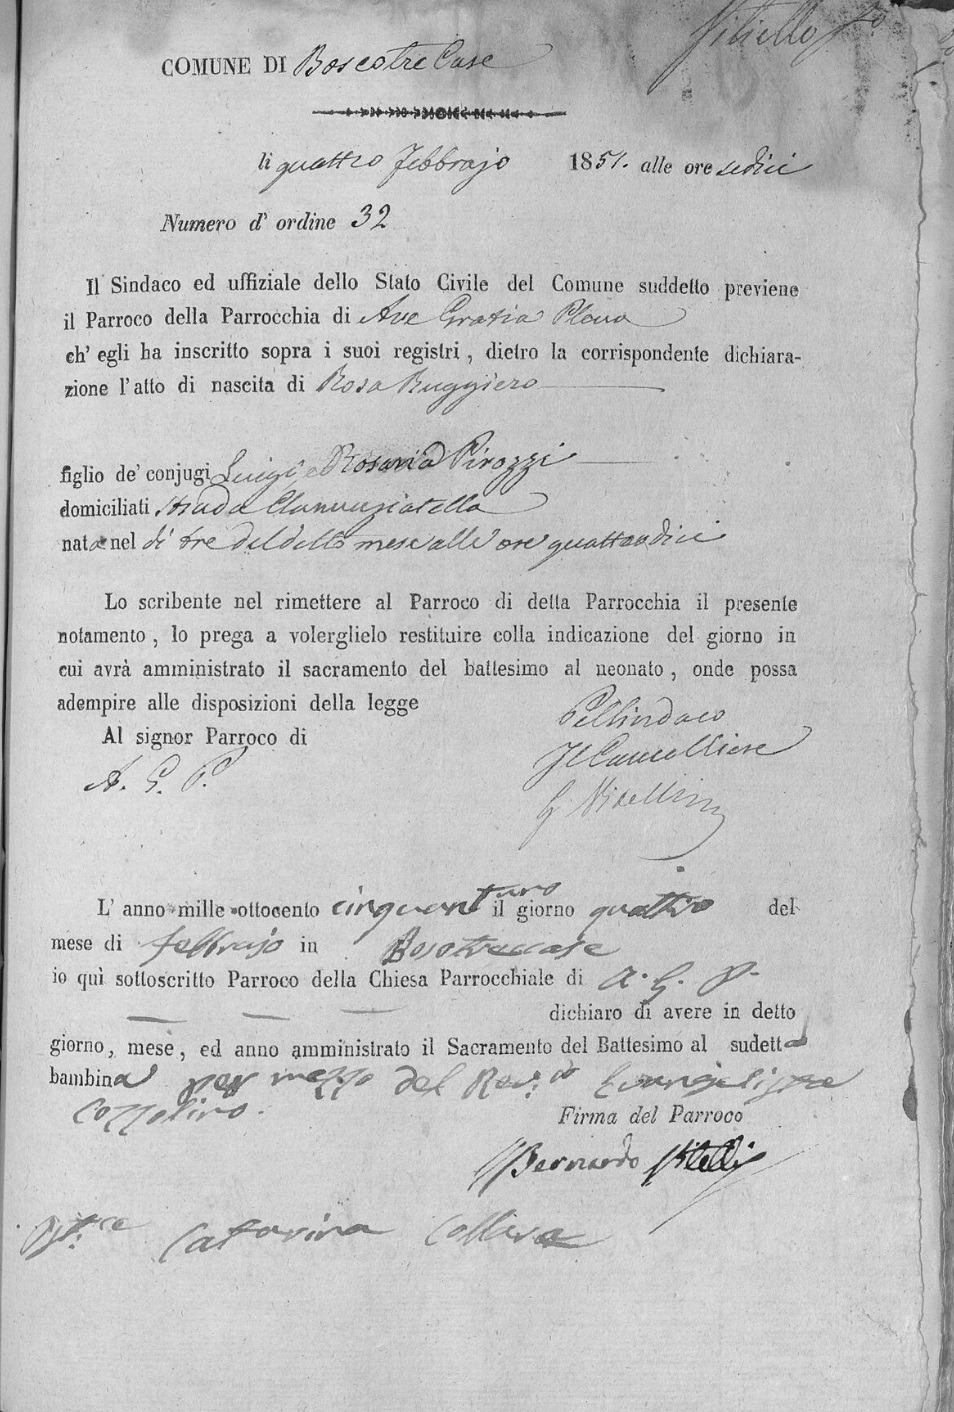 Vitiello
COMUNE DI Boscotre Case
li quattro Febbrajo 1851. alle ore sedici
Numero d' ordine 32
Il Sindaco ed uffiziale dello Stato Civile del Comune suddetto previene
il Parroco della Parrocchia di Ave Gratia Plena
ch' egli ha inscritto sopra i suoi registri, dietro la corrispondente dichiara-
zione l' atto di nascita di Rosa Ruggiero
figlio de' conjugi Luigi e Rosaria Pirozzi
domiciliati strada
nata nel di tre del detto mese alle ore quattordici
Lo scribente nel rimettere al Parroco di detta Parrocchia il presente
notamento, lo prega a volerglielo restituire colla indicazione del giorno in
cui avrà amministrato il sacramento del battesimo al neonato, onde possa
adempire alle disposizioni della legge
Al signor Parroco di
A. G. P.
Pel Sindaco
Il Cancelliere
L' anno mille ottocento cinquantuno il giorno quattro del
mese di febbrajo in Boscotrecase
io quì sottoscritto Parroco della Chiesa Parrocchiale di A. G. P.
dichiaro di avere in detto
giorno, mese, ed anno amministrato il Sacramento del Battesimo al sudetta
bambina per mezzo del Rev.do Evangelista
Cozzolino.
Firma del Parroco
Bernardo Vitelli
Catarina